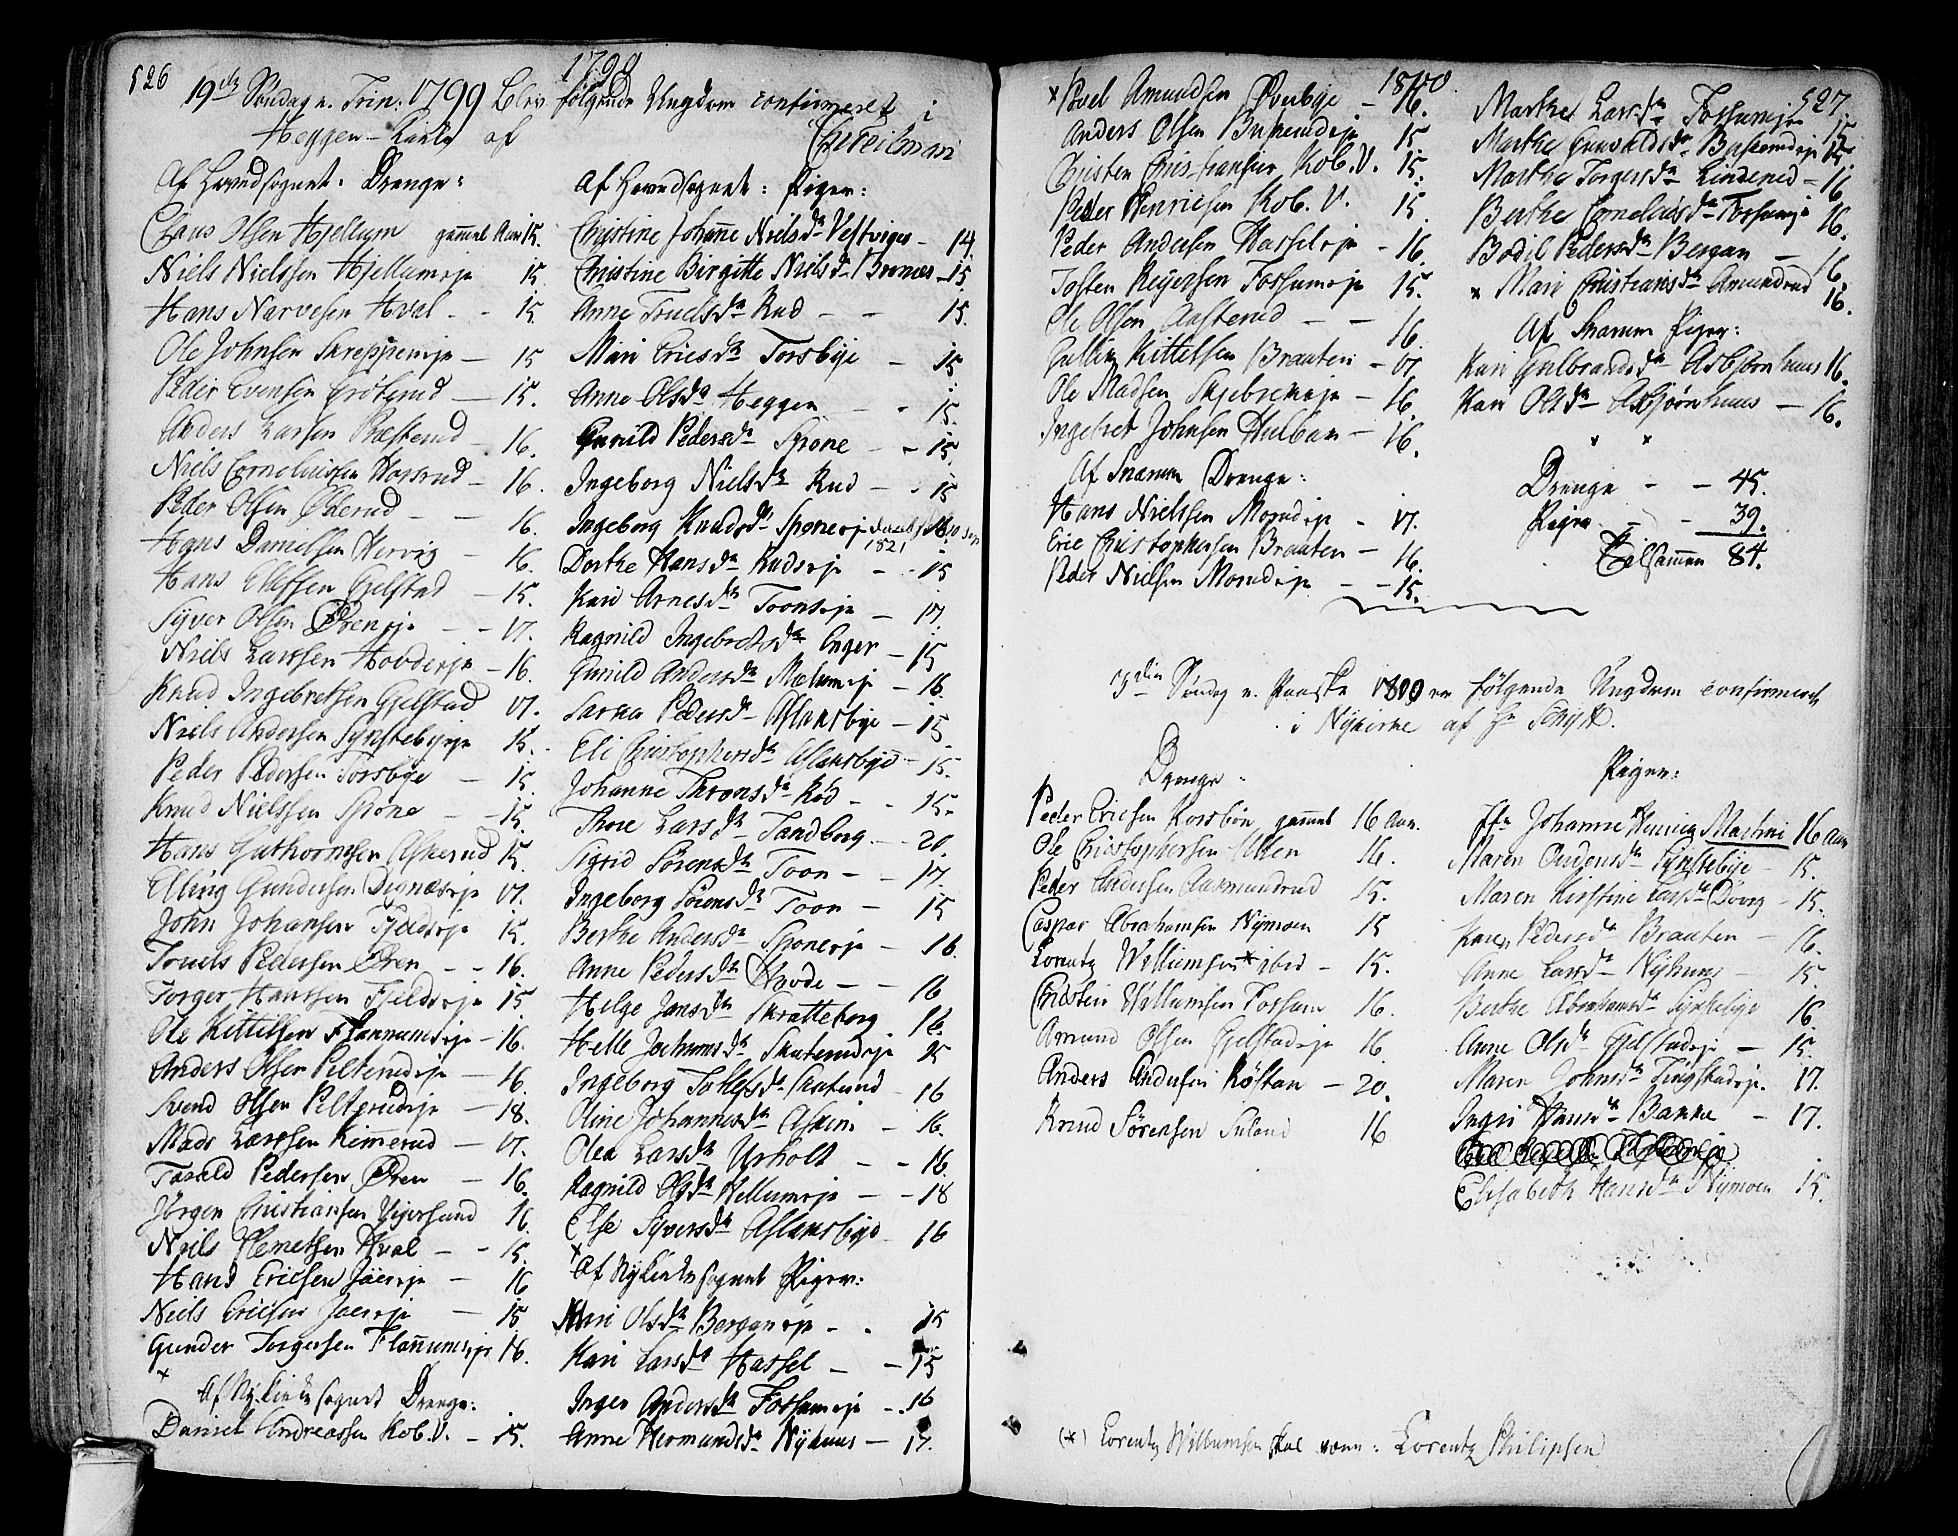 526
1799
19de Søndag n. Trin: 1799 blev følgende Ungdom confirmeret i
Heggen-Kirke af
Af Hovedsognet: Drenge:
Claus Olsen Hjellum gammel Aar 15.
Niels Nielssen Hjellumeje 15.
Hans Narvesen Hval - - 15.
Ole Johnsen Skreppeneje - 15
Peder Evensen 15.
Anders Larsen Præsterud - 16.
Niels Corneliussen - 16.
Peder Olsen - - 16.
Hans Danielsen Hervig - 16.
Hans Gjelstad - 15.
Syver Olsen Øreneje - - 17.
Niels Larssen Hovdeeje - 16.
Knud Ingebretsen Gjelstad 17.
Niels Andersen 15.
Peder Pedersen Torsbye - 15.
Knud Nielssen Spone - 15.
Hans Guthormsen Askerud 15.
Elling Gundersen Digneseje 17.
John Johansen Fjeldseje 15.
Truels Pedersen Øren - - 16.
Torger Hanssen Fjeldseje 15
Ole Kittelsen Flannumeje - 16.
Anders Olsen Pelterudeje - 16.
Svend Olsen Pelterudeje - 18.
Mads Larssen Kimerud - 17.
Tarald Pedersen Øren - 16.
Jørgen Christiansen 16.
Niels Hval - - 15.
Hans Ericsen Jareje - 16
Niels Ericsen Jareje - 15
Gunder Torgersen Flannumeje 16.
x
Af Nykirke sognet Drenge:
Daniel Andreassen Kob. V. - 15.
Af Hovedsognet: Piger:
Christine Johanne Nielsdr. - 14.
Christine Birgitte Nielsdr. - 15.
Anne Truelsdr. Rud - - 15.
Mari Ericsdr. Torsbye - 15
Anne Olsdr. Heggen - - 15.
Gunild Pedersdr. Spone - - 15.
Ingeborg Nielsdr. Rud - - 15
Ingeborg Knudsdr. Sponeeje 1821
Dorthe Hansdr. Rudseje - - 15
Kari Arnesdr. Toonseje - 17.
Ragnild Ingebretsdr. Enger - 15
Gunild Andersdr. Melumeje - 16
Pedersdr. Aslaksbye - 15
Eli Christophersdr. Aslaksbye - 15.
Johanne Thronsdr. Rød - - 15.
Thore Larsdr. Tandberg - 20.
Sigrid Sørensdr. Toon - - 17.
Ingeborg Sørensdr. Toon - 15
Berthe Andersdr. Sponeeje - 16
Anne Pedersdr. Hovde - - 16
Helge Jansdr. Skratteborg 16.
Helle Jochumsdr. Skuterudeje 25
Ingeborg - 16
Oline Johannesdr. Askim - 16.
Olea Larsdr. Urholt - - 16
Ragnild Olsdr. Vellumeje - - 18
Else Syversdr. Aslaksbye - 16
x
Af Nykirke sognet Piger:
Mari Olsdr. Berganeje - - 15
Kari Larsdr. Hassel - - 15
Inger Andersdr. Fossumeje - - 16
Anne Hermundsdr. Nyhuus - 17.
1800.
527.
x Poel Amundsen Øverbye - 16.
Anders Olsen Buskerudeje 15
Christen Christiansen Kob. V. 15.
Peder Henricsen Kob. V. 15.
Peder Andersen Hasseleje - 16.
Tosten Reyersen Fossumeje 15.
Ole Olsen Aasterud - - 16.
Gullik Kittelsen Braaten - 17.
Ole Madsen Skjebrekeje - 16.
Ingebret Johnsen Hulbak - 16.
Af Snarum Drenge:
Hans Nielssen Morudeje - 17.
Eric Christophersen Braaten - 16.
Peder Nielsen Morudeje - - 15.
Marthe Larsdr. Fossumeje 15
Marthe Gunvaldsdr. Buskerudeje 15.
Marthe Torgersdr. Linderud - 16
Berthe Cornelausdr. Fossumeje 16.
Bodil Pedersdr. Bergan - 16.
x Mari Christiansdr. Amundrud 16.
Af Snarum Piger:
Kari Gulbrandsdr. Asbjørnhuus 16.
Kari Olsdr. Asbjørnhuus - 16.
x x
Drenge - - 45.
Piger - - 39.
Tilsammen 84.
3die Søndag n. Paaske 1800 er følgende Ungdom confirmeret
i Nykirke af Hr
Drenge
Peder Ericsen Korsbøn gammel 16 Aar.
Ole Christophersen 16.
Peder Andersen Aasmundrud 15.
Caspar Abrahamsen Nymoen 15
Lorentz Willumsen * ibid - 15.
Christen Willumsen Fossum 16.
Amund Olsen Gjelstadeje 16.
Anders Andersen Køstan - 20.
Knud Sørensen 16
Piger:
Johanne Henrica Martini 16 Aar
Maren Synstebye - 15.
Maren Kirstine Larsdr. - 15.
Karen Pedersdr. Braaten - 16.
Anne Larsdr. Nyhuus - 15.
Berthe Abrahamsdr. Synstebye 16
Anne Olsdr. Gjelstadeje - 15.
Maren Johnsdr. 17.
Ingri Hansdr. Bakke - 17.
Elisabeth Hansdr. Nymoen 15.
(*) Lorentz Willumsen skal være: Lorentz Philipsen